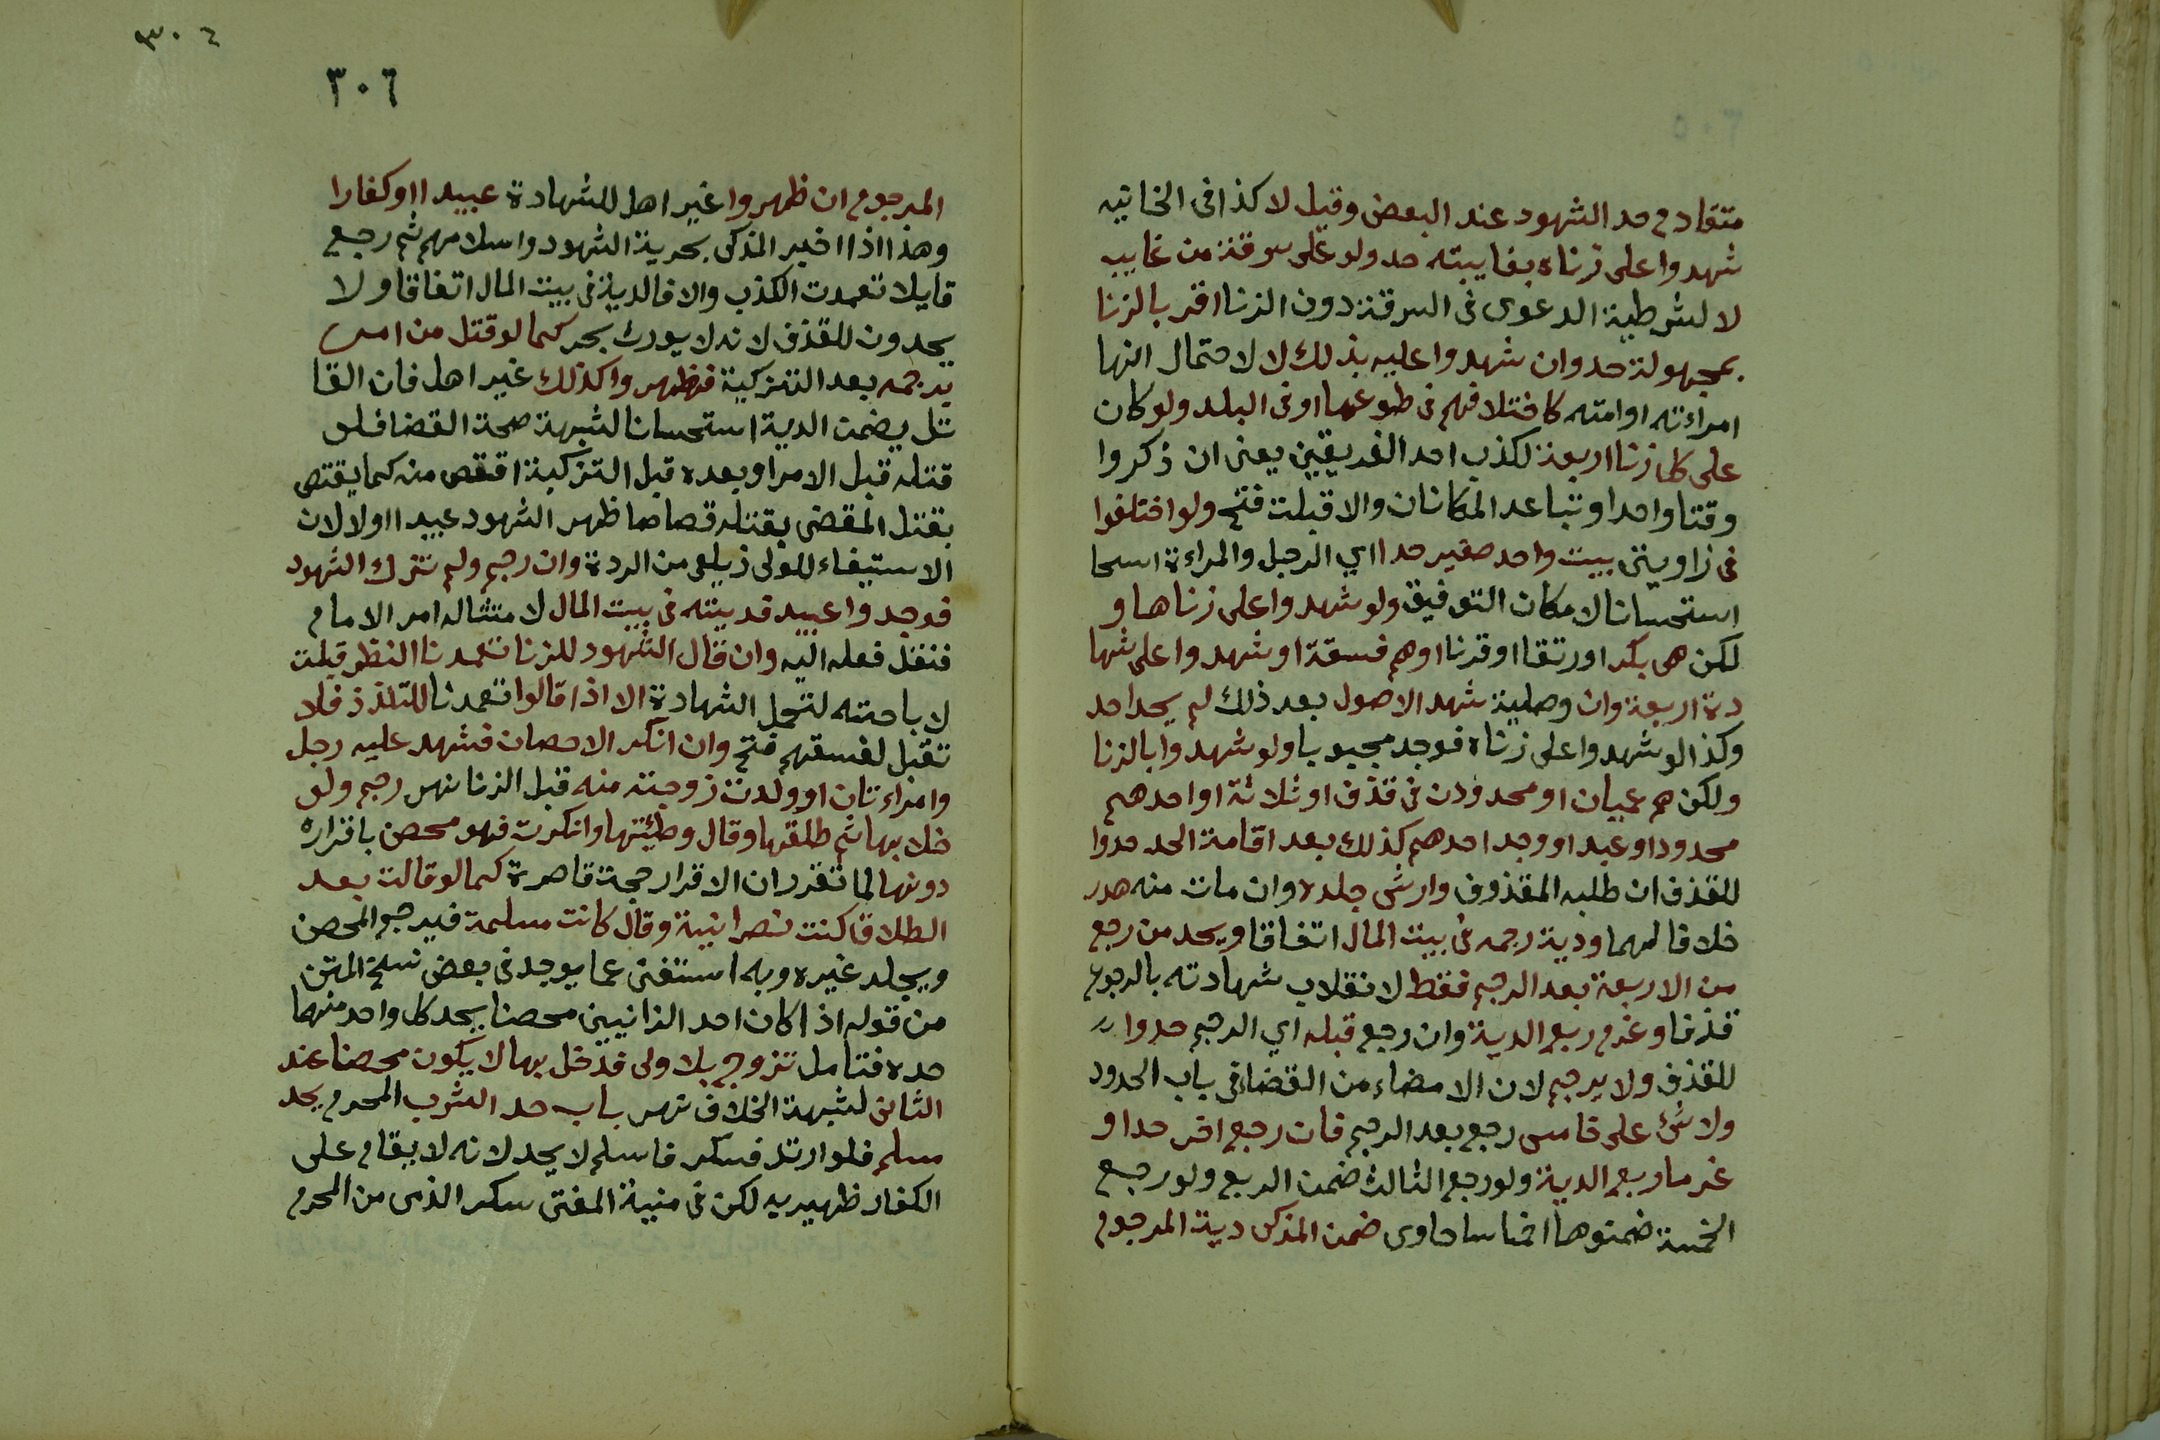 متقادم حد الشهود عند البعض وقيل لا كذا فى الخانيه
شهدوا على زناه بغايبته حد ولو على سرقة من غايب
لا لشرطية الدعوى فى السرقة دون الزنا اقر بالزنا
بمجهولة حد وان شهدوا عليه بذلك لا لاحتمال انها
امراءته او امته كاختلافهم فى طوعها او فى البلد ولو كان
على كل زنا اربعة لكذب احد الفريقين يعنى ان ذكروا
وقتا واحدا وتباعد المكانان والا قبلت فتح ولو اختلفوا
فى زاويتى بيت واحد صغير حدا اي الرجل والمراءة اسحا
استحسانا لامكان التوفيق ولو شهدوا على زناها و
لكن هى بكر او رتقا او قرنا او هم فسقة او شهدوا على شها
دة اربعة وان وصلية شهد الاصول بعد ذلك لم يحد احد
وكذا لو شهدوا على زناه فوجد مجبوبا ولو شهدوا بالزنا
ولكن هم عميان او محدودون فى قذف او ثلاثة او احدهم
محدود او عبد او وجد احدهم كذلك بعد اقامة الحد حدوا
للقذف ان طلبه المقذوف وارش جلده وان مات منه هدر
خلافا لهما ودية رجمه فى بيت المال اتفاقا ويحد من رجع
من الاربعة بعد الرجم فقط لانقلاب شهادته بالرجوع
قذفا وغرم ربع الدية وان رجع قبله اي الرجم حدوا
للقذف ولا يرجم لان الامضاء من القضا فى باب الحدود
ولا شئ على خامس رجع بعد الرجم فان رجع اخر حدا و
غرما ربع الدية ولو رجع الثالث ضمن الربع ولو رجع
الخمسة ضمنوها اخماسا حاوى ضمن المزكى دية المرجوم
٣٠٤
٣٠٦
المرجوم ان ظهروا غير اهل للشهادة عبيدا او كفارا
وهذا اذا اخبر المزكى بحرية الشهود واسلامهم ثم رجع
قايلا تعمدت الكذب والا فالدية فى بيت المال اتفاقا ولا
يحدون للقذف لانه لا يورث بحر كما لو قتل من امر
برجمه بعد التزكية فظهروا كذلك غير اهل فان القا
تل يضمن الدية استحسانا لشبهة صحة القضا فلو
قتله قبل الامر او بعده قبل التزكية اقتص منه كما يقتص
بقتل المقضى بقتله قصاصا ظهر الشهود عبيدا اولا لان
الاستيفاء للولى زيلعى من الردة وان رجم ولم تترك الشهود
فوجدوا عبيد فديته فى بيت المال لامتثاله امر الامام
فنقل فعله اليه وان قال الشهود للزنا تعمدنا النظر قبلت
لاباحته لتحمل الشهادة الا اذا قالوا تعمدنا للتلذذ فلا
تقبل لفسقهم فتح وان انكر الاحصان فشهد عليه رجل
وامراءتان او ولدت زوجته منه قبل الزنا نهر رجم ولو
خلا بها ثم طلقها وقال وطئتها وانكرت فهو محصن باقراره
دونها لما تقرر ان الاقرار حجة قاصرة كما لو قالت بعد
الطلاق كنت نصرانية وقال كانت مسلمة فيرجم المحصن
ويجلد غيره وبه استغنى عما يوجد فى بعض نسخ المتن
من قوله اذا كان احد الزانيين محصنا يحد كل واحد منهما
حده فتامل تزوج بلا ولى فدخل بها لا يكون محصنا عند
الثانى لشبهة الخلاف نهر باب حد الشرب المحرم يحد
مسلم فلو ارتد فسكر فاسلم لا يحد لانه لا يقام على
الكفار ظهيريه لكن فى منية المفتى سكر الذمى من المحرم